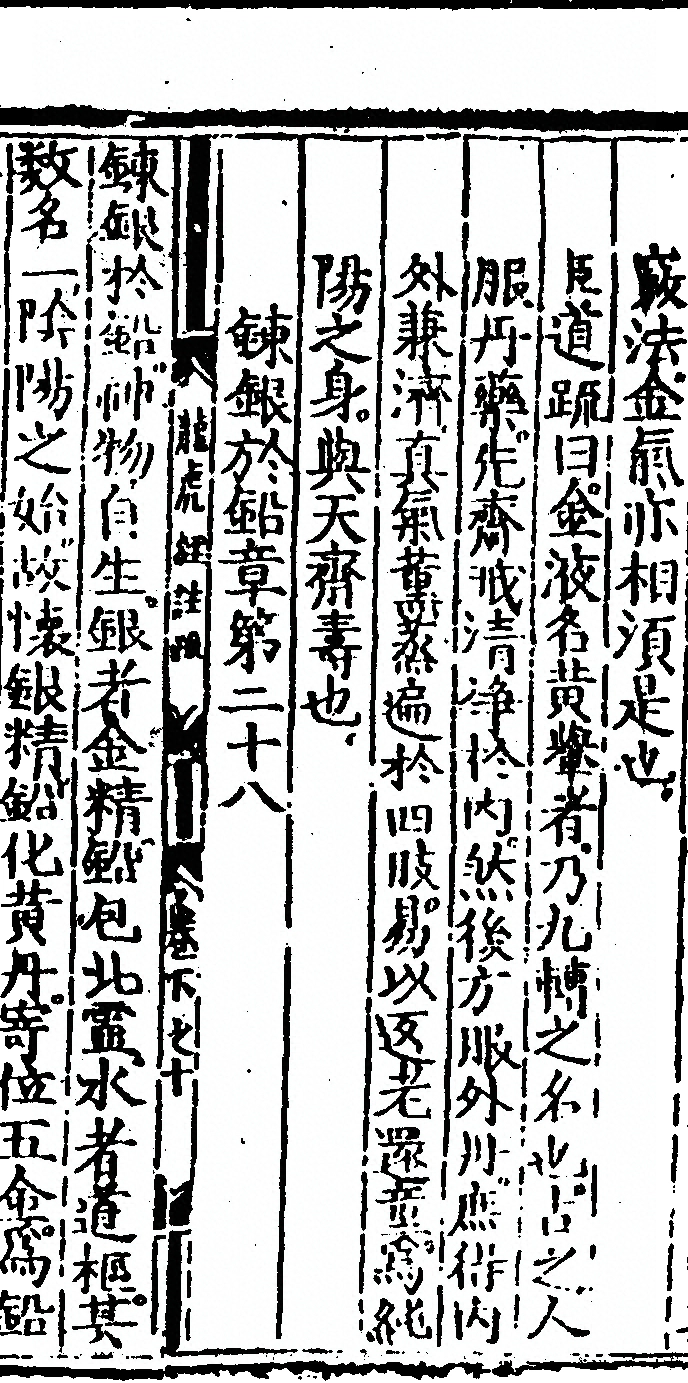 竅法金氣亦相須是也
臣道疏曰金液名黃轝者乃九轉之名也古之人
服丹藥先齋戒清淨於內然後方服外丹庶得內
外兼濟真氣薰蒸遍於四肢易以返老還童爲純
陽之身與天齊壽也
鍊銀於鉛章第二十八
龍虎經註疏 卷下之十
鍊銀於鉛神物自生銀者金精鉛包北靈水者道樞其
数名一陰陽之始故懷銀精鉛化黃丹寄位五金爲鉛